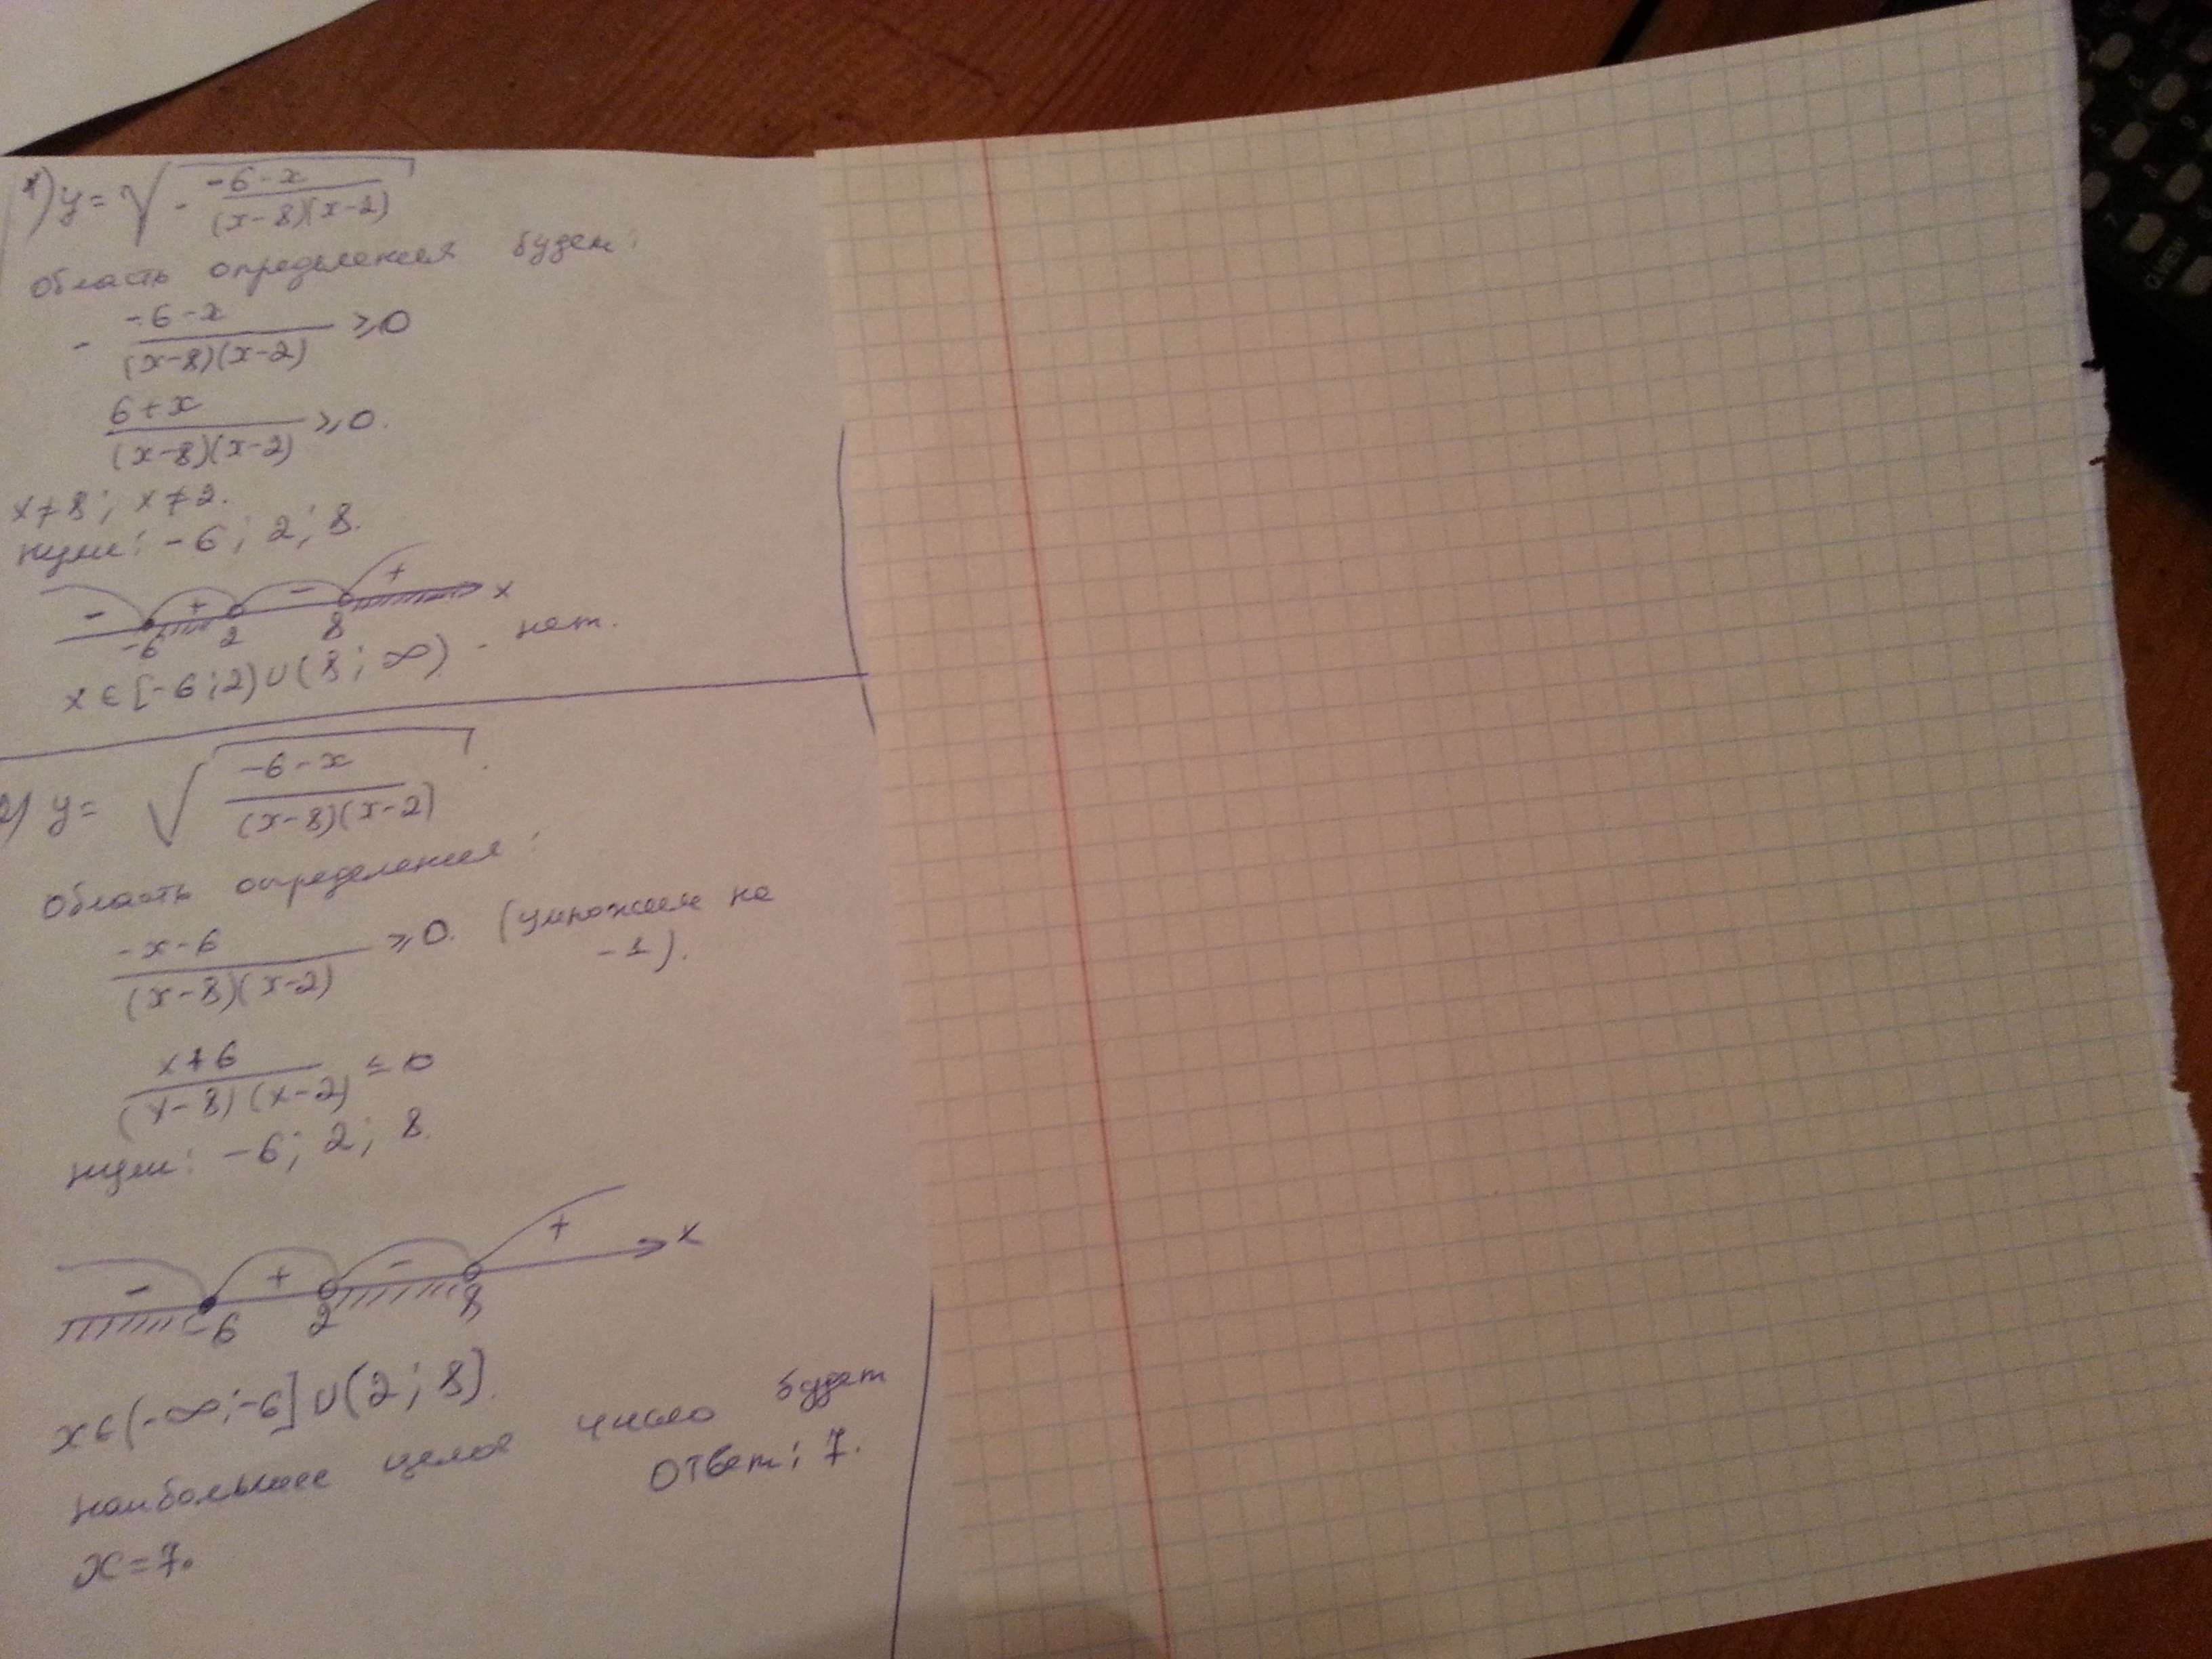 1) y = √(- (-6-x)/((x-8)(x-2)))
Область определения будет:
- (-6-x)/((x-8)(x-2)) ≥ 0
(6+x)/((x-8)(x-2)) ≥ 0.
x≠8; x≠2.
нули: -6; 2; 8.
- + - + x
-6 2 8
x ∈ [-6;2) ∪ (8; ∞) - нет.
2) y = √((-6-x)/((x-8)(x-2)))
Область определения:
(-x-6)/((x-8)(x-2)) ≥ 0. (умножаем на
-1).
(x+6)/((x-8)(x-2)) ≤ 0
нули: -6; 2; 8.
- + - + x
-6 2 8
x ∈ (-∞;-6] ∪ (2; 8).
наибольшее целое число будет
x = 7.
Ответ: 7.
Q.VIEW